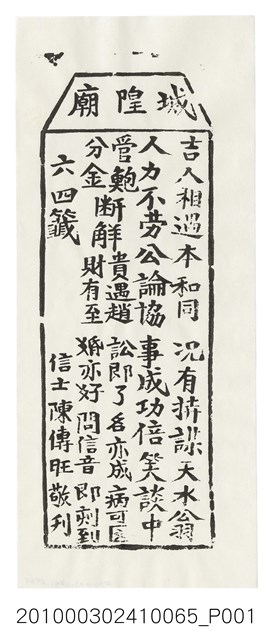 城隍廟
吉人相遇本和同 況有持謀天水翁
人力不勞公論協 事成功倍笑談中
管鮑 斷解 貴遇趙 訟即了 名亦成 病可
分金 財有至 婚亦好 問信音 即刻到
六四籤 信士陳傳旺敬刊
201000302410065_P001